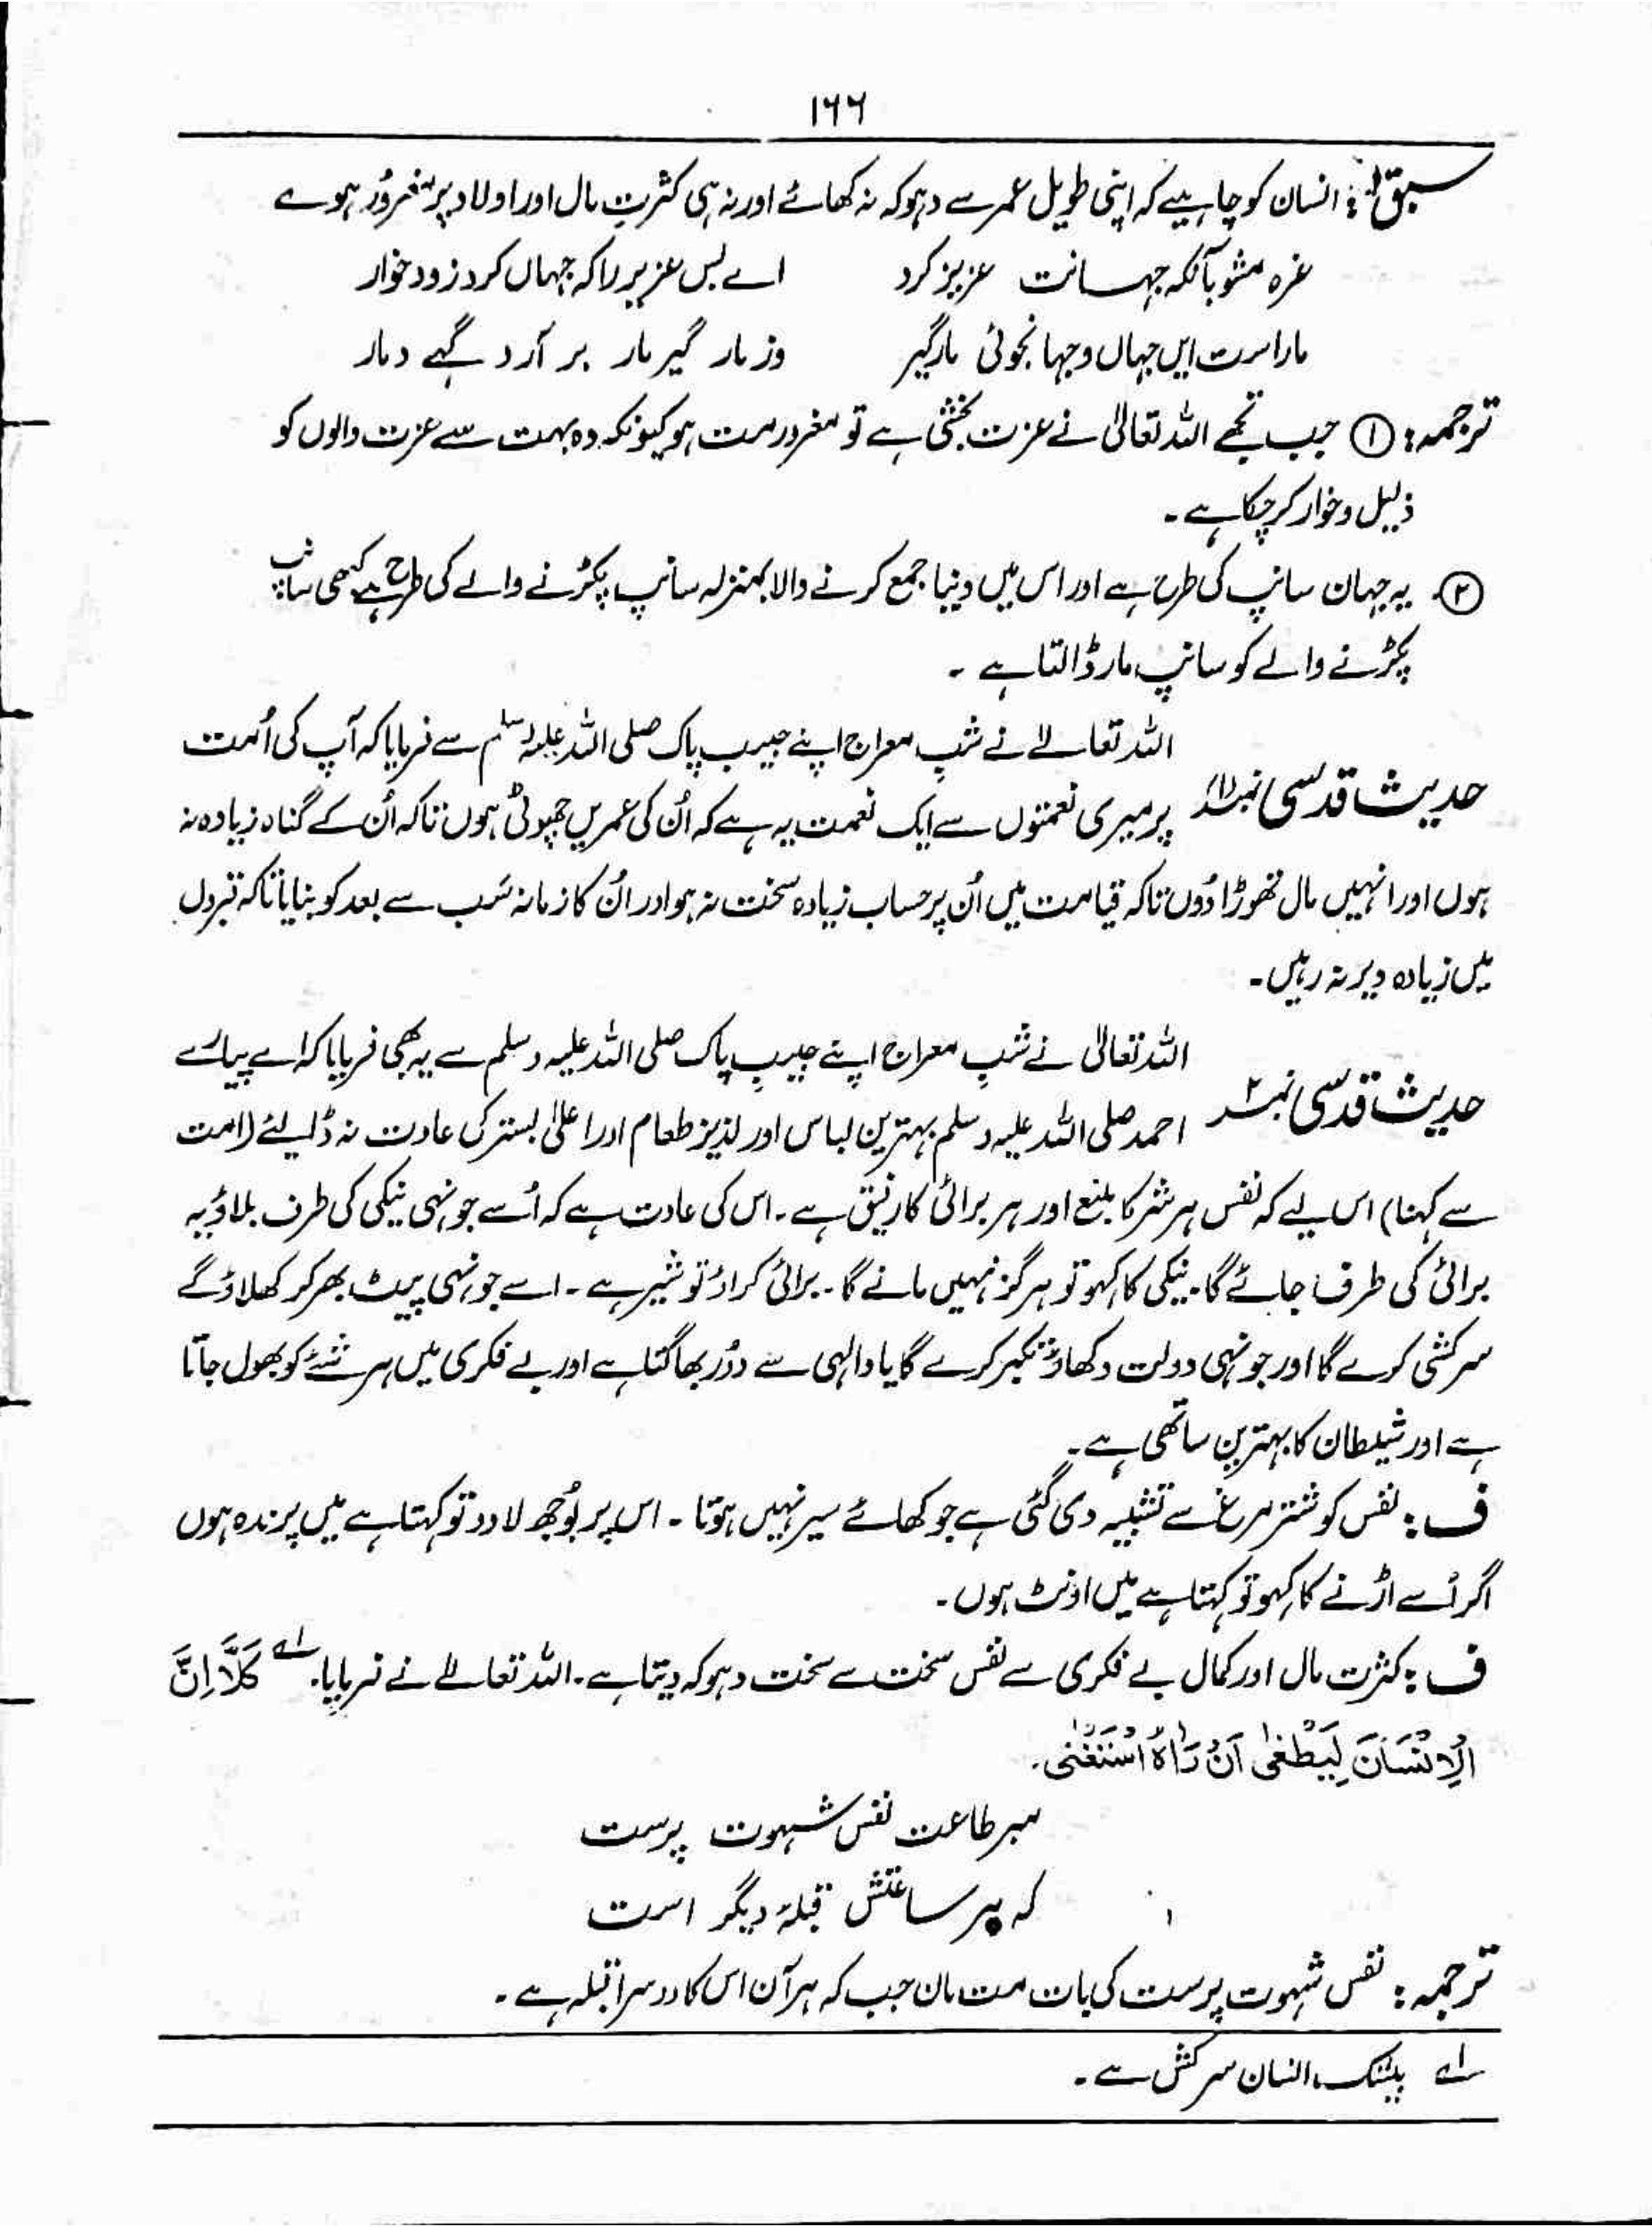 ۱۶۶
سبق: انسان کو چاہیے کہ اپنی طویل عمر سے دہوکہ نہ کھائے اور نہ ہی کثرتِ مال اور اولاد پر مغرور ہوے
غرہ مشو بآنکہ جہانت عزیز کرد اے بس عزیز را کہ جہاں کرد زود خوار
مار است ایں جہاں و جہانجوئی مارگیر وز مار گیر مار بر آرد گہے دمار
ترجمہ: ① جب تجھے اللہ تعالیٰ نے عزت بخشی ہے تو مغرور مت ہو کیونکہ وہ بہت سے عزت والوں کو
ذلیل و خوار کر چکا ہے۔
② یہ جہان سانپ کی طرح ہے اور اس میں دنیا جمع کرنے والا بمنزلہ سانپ پکڑنے والے کی طرح ہے کبھی سانپ
پکڑنے والے کو سانپ مار ڈالتا ہے ۔
اللہ تعالےٰ نے شبِ معراج اپنے حبیب پاک صلی اللہ علیہ وسلم سے فرمایا کہ آپ کی اُمت
حدیث قدسی نمبر(۱) پر میری نعمتوں سے ایک نعمت یہ ہے کہ اُن کی عمریں چھوٹی ہوں تاکہ اُن کے گناہ زیادہ نہ
ہوں اور انہیں مال تھوڑا دُوں تاکہ قیامت میں اُن پر حساب زیادہ سخت نہ ہو اور اُن کا زمانہ سَب سے بعد کو بنایا تاکہ قبروں
میں زیادہ دیر نہ رہیں۔
اللہ تعالیٰ نے شبِ معراج اپنے حبیبِ پاک صلی اللہ علیہ وسلم سے یہ بھی فرمایا کہ اے پیارے
حدیث قدسی نمبر ۲ احمد صلی اللہ علیہ وسلم بہترین لباس اور لذیذ طعام اور اعلیٰ بستر کی عادت نہ ڈالیئے (امت
سے کہنا) اس لیے کہ نفس ہر شر کا منبع اور ہر برائی کا رفیق ہے۔ اس کی عادت ہے کہ اُسے جونہی نیکی کی طرف بلاؤ یہ
برائی کی طرف جائے گا۔ نیکی کا کہو تو ہرگز نہیں مانے گا۔ برائی کراؤ تو شیر ہے ۔ اسے جونہی پیٹ بھر کر کھلاؤ گے
سرکشی کرے گا اور جونہی دولت دکھاؤ تکبر کرے گا یاد الٰہی سے دُور بھاگتا ہے اور بے فکری میں ہر شئے کو بھول جاتا
ہے اور شیطان کا بہترین ساتھی ہے۔
ف: نفس کو شتر مرغ سے تشبیہ دی گئی ہے جو کھائے سیر نہیں ہوتا ۔ اس پر بُوجھ لادو تو کہتا ہے میں پرندہ ہوں
اگر اُسے اڑنے کا کہو تو کہتا ہے میں اونٹ ہوں۔
ف: کثرت مال اور کمال بے فکری سے نفس سخت سے سخت دہوکہ دیتا ہے۔ اللہ تعالےٰ نے فرمایا۔ لہ كَلَّا اِنَّ
الْاِنْسَانَ لَیَطْغٰی اَنْ رَاٰہُ اسْتَغْنٰی۔
مبر طاعت نفس شہوت پرست
کہ ہر ساعتش قبلۂ دیگر است
ترجمہ: نفس شہوت پرست کی بات مت مان جب کہ ہر آن اس کا دوسرا قبلہ ہے ۔
لہ بیشک انسان سرکش ہے ۔